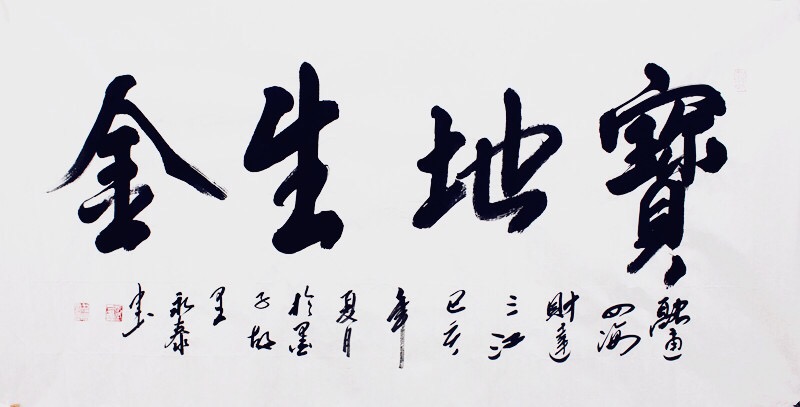 寶地生金
融通
四海
財達
三江
己亥
年
夏月
於墨
子故
里
永泰
书